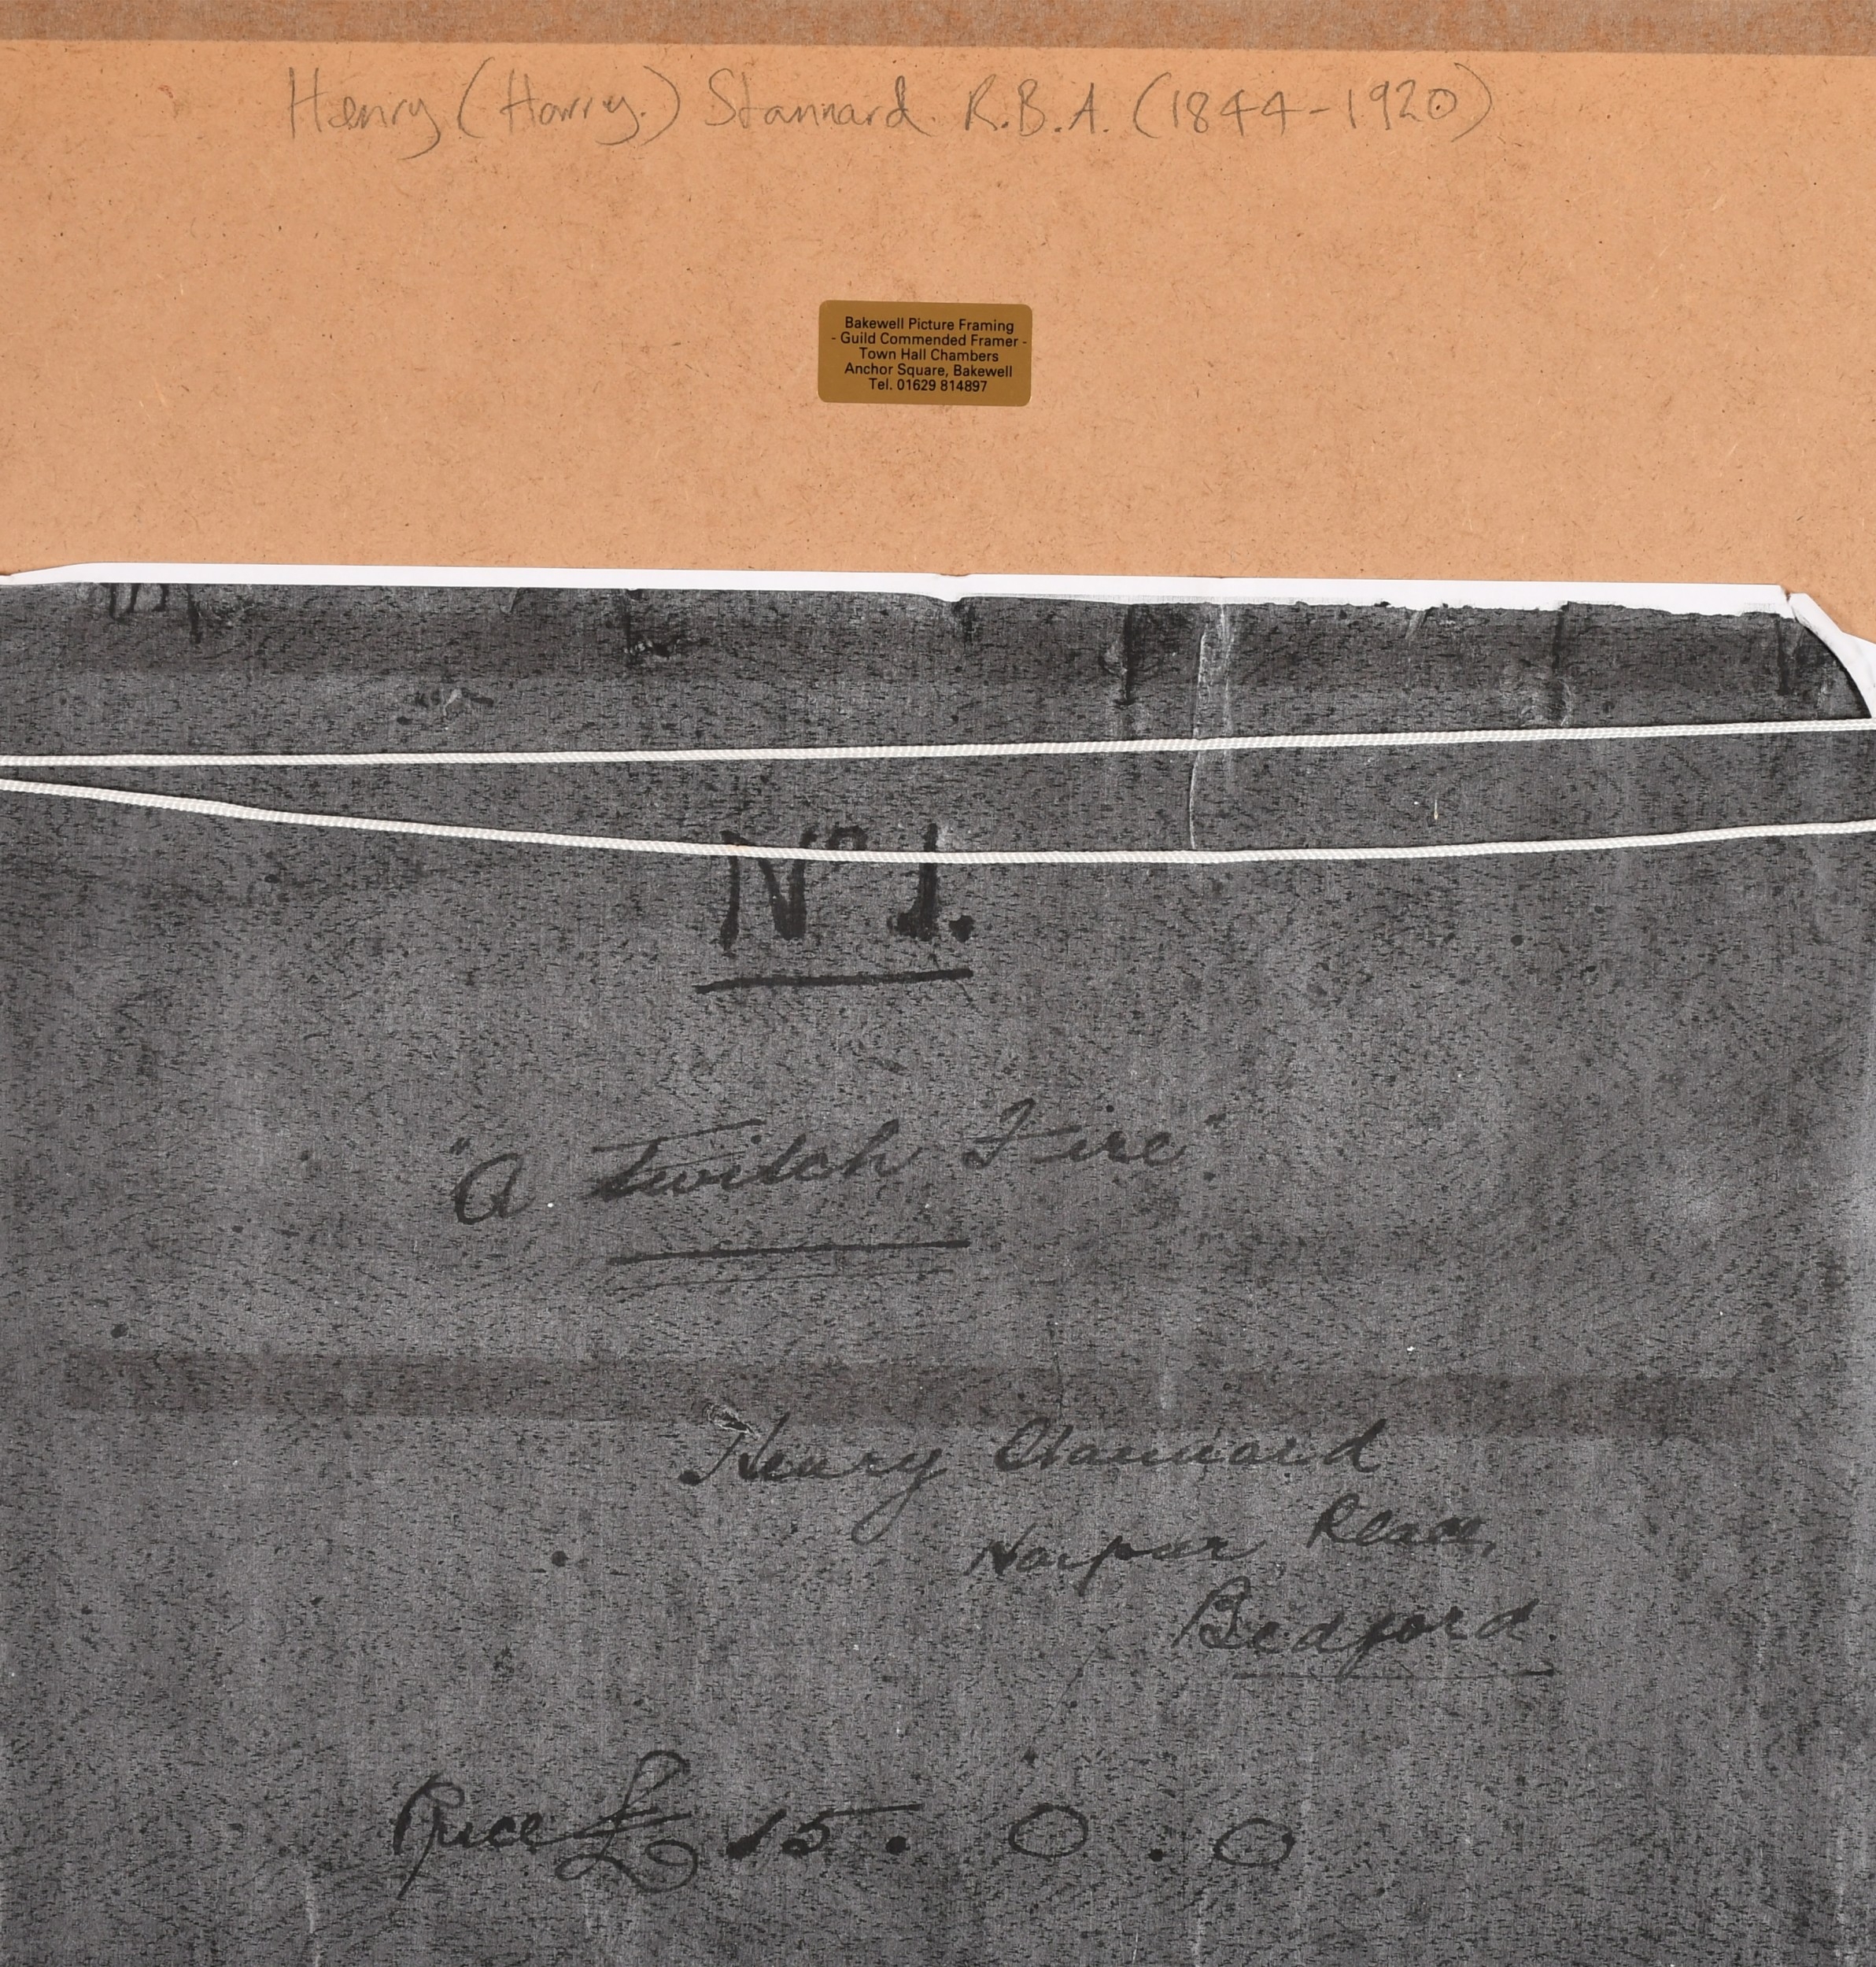 Henry (Harry.) Stannard. R.B.A. (1844-1920)
Bakewell Picture Framing
- Guild Commended Framer -
Town Hall Chambers
Anchor Square, Bakewell
Tel. 01629 814897
No 1.
"A Twitch Fire".
Henry Stannard
Harpur Place,
Bedford.
Price £15.0.0